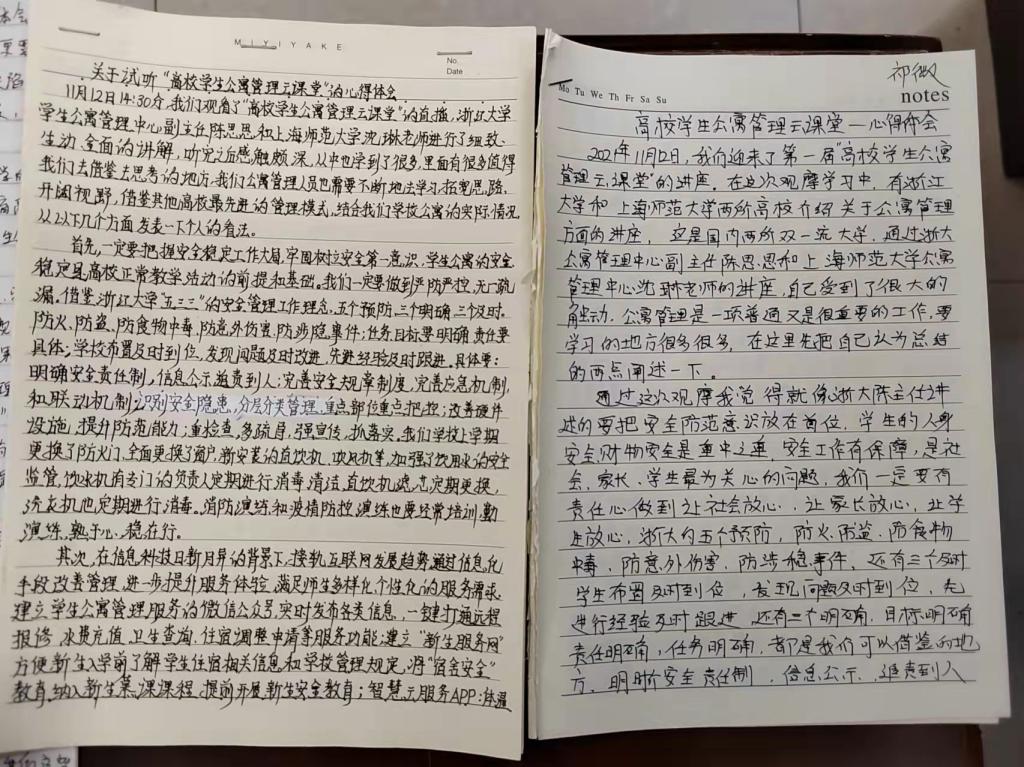 MIYIYAKE
No.
Date
关于试听“高校学生公寓管理云课堂”的心得体会
11月12日14:30分,我们观看了“高校学生公寓管理云课堂”的直播,浙江大学
学生公寓管理中心副主任陈思思和上海师范大学沈琳老师进行了细致、
生动、全面的讲解,听完之后感触颇深,从中也学到了很多,里面有很多值得
我们去借鉴去思考的地方,我们公寓管理人员也需要不断地去学习,拓宽思路,
开阔视野,借鉴其他高校最先进的管理模式,结合我们学校公寓的实际情况
从以下几个方面发表一下个人的看法。
首先,一定要把握安全稳定工作大局,牢固树立安全第一意识,学生公寓的安全
稳定是高校正常教学活动的前提和基础。我们一定要做到严防严控,无一疏
漏。借鉴浙江大学“五三三”的安全管理工作理念,五个预防、三个明确、三个及时。
防火、防盗、防食物中毒、防意外伤害、防涉稳事件;任务目标要明确,责任要
具体;学校布置及时到位,发现问题及时改进,先进经验及时跟进。具体要:
明确安全责任制,信息公示,追责到人;完善安全规章制度,完善应急机制,
和联动机制;识别安全隐患,分层分类管理,重点部位重点把控;改善硬件
设施,提升防范能力;重检查,多疏导,强宣传,抓落实。我们学校上学期
更换了防火门,全面更换了窗户,新安装的直饮机、吹风机等,加强了饮用水的安全
监管,饮水机有专门的负责人定期进行消毒清洁,直饮机滤芯定期更换,
洗衣机也定期进行消毒。消防演练和疫情防控演练也要经常培训,勤
演练,熟于心,稳在行。
其次,在信息科技日新月异的背景下,接轨互联网发展趋势,通过信息化
手段改善管理,进一步提升服务体验,满足师生多样化个性化的服务需求
建立学生公寓管理服务的微信公众号,实时发布各类信息,一键打通远程
报修、水费充值、卫生查询、住宿调整申请等服务功能;建立“新生服务网”
方便新生入学前了解学生住宿相关信息和学校管理规定,将“宿舍安全”
教育纳入新生慕课课程,提前开展新生安全教育;智慧云服务APP:体温
祁微
Mo Tu We Th Fr Sa Su
notes
高校学生公寓管理云课堂一心得体会
2021年11月12日,我们迎来了第一届“高校学生公寓
管理云课堂”的讲座。在这次观摩学习中,有浙江
大学和上海师范大学两所高校介绍关于公寓管理
方面的讲座,这是国内两所双一流大学,通过浙大
公寓管理中心副主任陈思思和上海师范大学公寓
管理中心沈琳老师的讲座,自己受到了很大的
触动,公寓管理是一项普通又是很重要的工作,要
学习的地方很多很多,在这里先把自己认为总结
的两点阐述一下。
通过这次观摩我觉得就像浙大陈主任讲
述的要把安全防范意识放在首位,学生的人身
安全财物安全是重中之重,安全工作有保障,是社
会、家长、学生最为关心的问题,我们一定要有
责任心做到让社会放心,让家长放心,让学
生放心,浙大的五个预防,防火、防盗、防食物
中毒、防意外伤害、防涉稳事件,还有三个及时
学生布置及时到位,发现问题及时到位,先
进行经验及时跟进,还有三个明确,目标明确
责任明确,任务明确,都是我们可以借鉴的地
方,明晰安全责任制,信息公示,追责到人